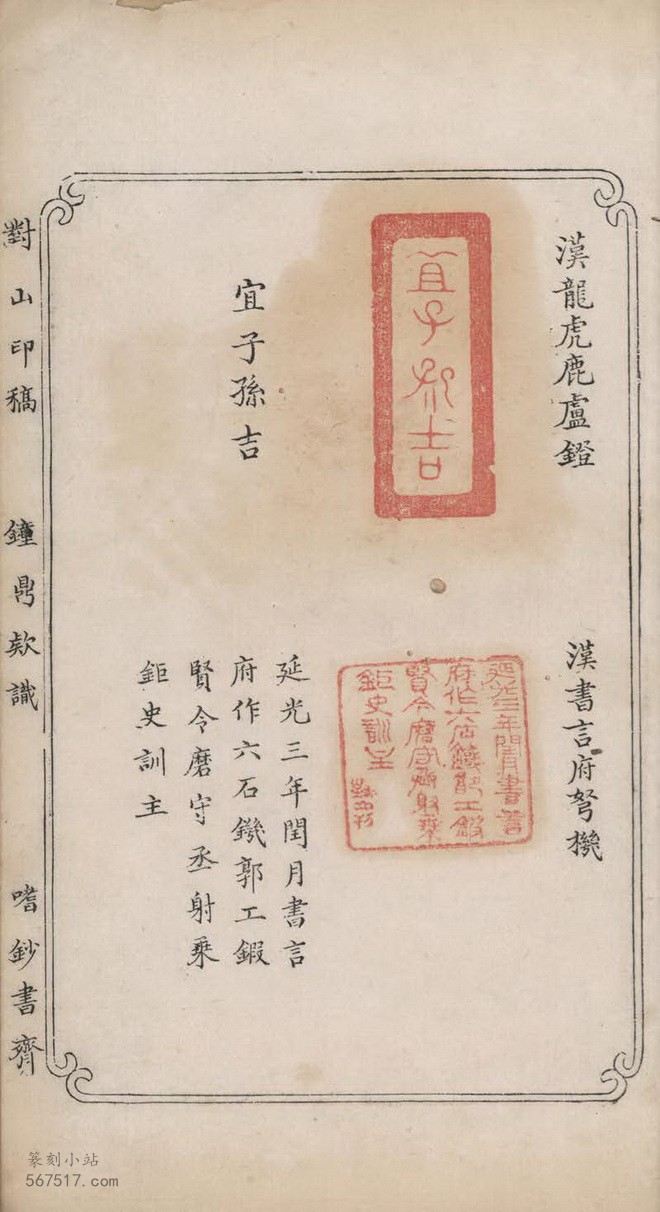 漢龍虎鹿盧鐙
宜子孫吉
宜子孫吉
漢書言府弩機
延光三年閏月書言
府作六石鐖郭工鍛
賢令磨守丞射乗
鉅史訓主
延光三年閏月書言
府作六石鐖郭工鍜
賢令磨守丞射乗
鉅史訓主
對山印稿
鐘鼎欵識
嗜鈔書齊
篆刻小站
567517.com